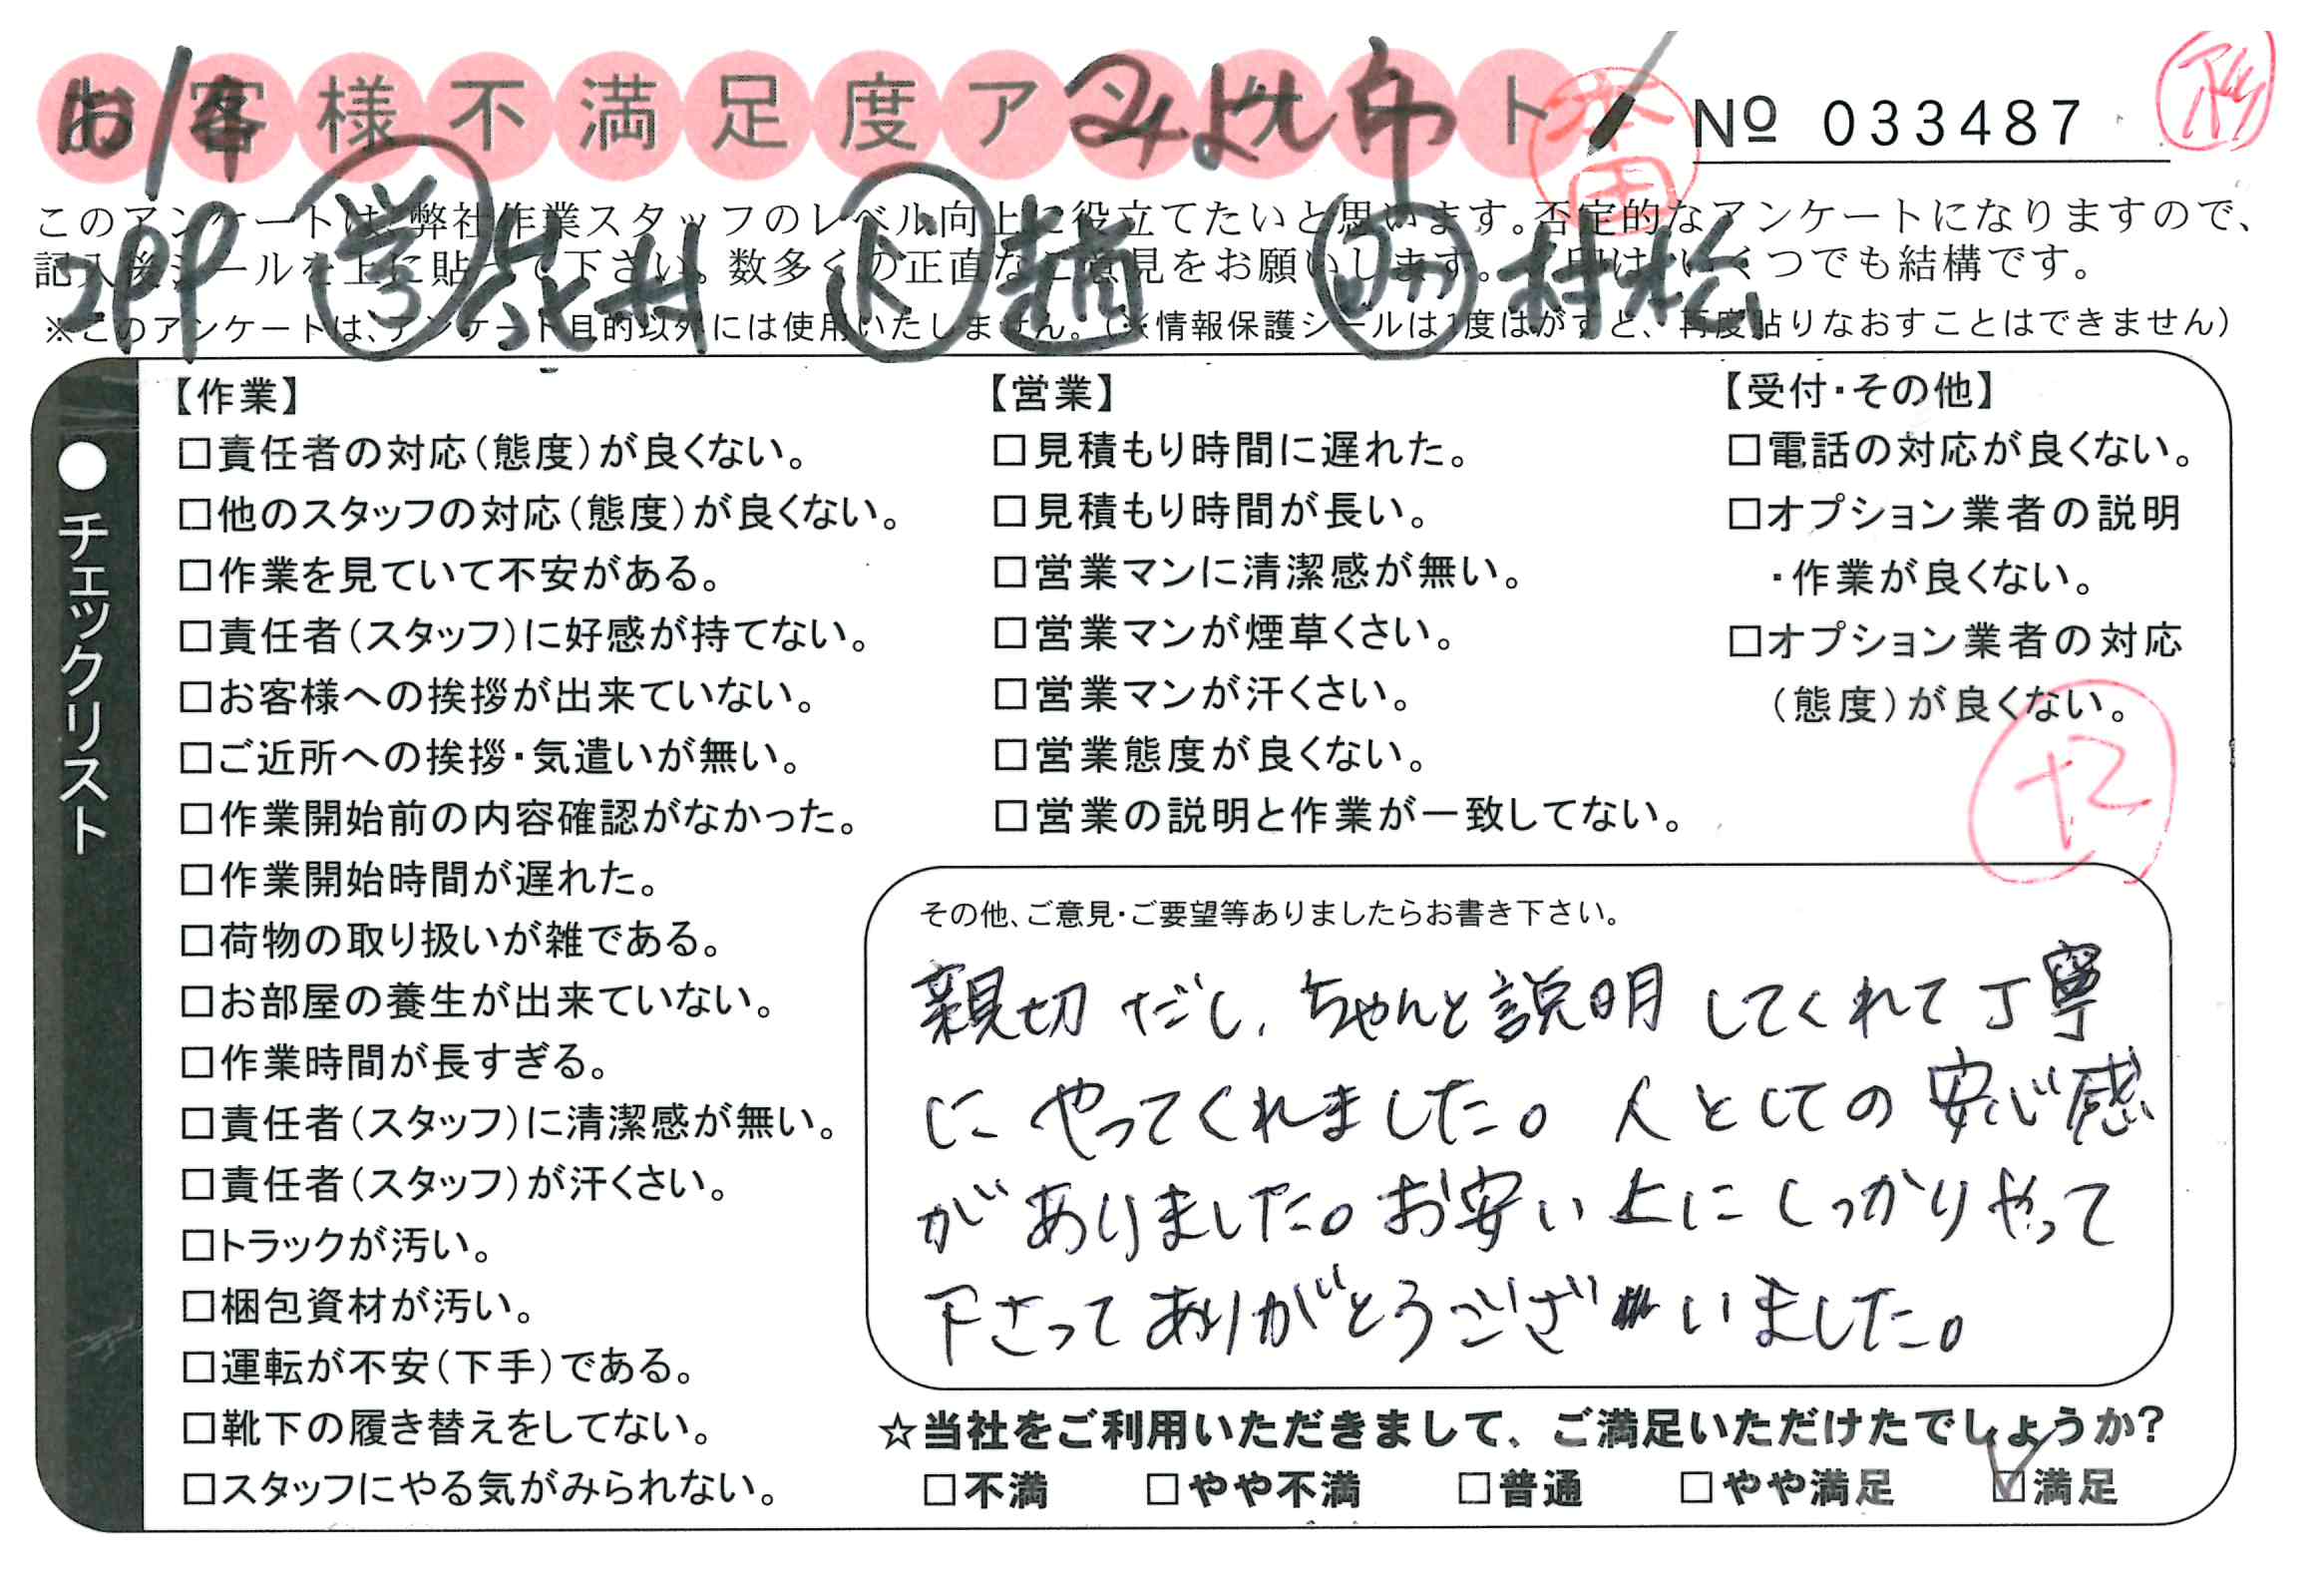 お客様不満足度アンケート
本田
№ 033487
このアンケートは、弊社作業スタッフのレベル向上に役立てたいと思います。否定的なアンケートになりますので、
記入後シールを上に貼って下さい。数多くの正直なご意見をお願いします。
いくつでも結構です。
2PP 村松
※このアンケートは、アンケート目的以外には使用いたしません。(※情報保護シールは1度はがすと、再度貼りなおすことはできません)
●チェックリスト
【作業】
□責任者の対応(態度)が良くない。
□他のスタッフの対応(態度)が良くない。
□作業を見ていて不安がある。
□責任者(スタッフ)に好感が持てない。
□お客様への挨拶が出来ていない。
□ご近所への挨拶・気遣いが無い。
□作業開始前の内容確認がなかった。
□作業開始時間が遅れた。
□荷物の取り扱いが雑である。
□お部屋の養生が出来ていない。
□作業時間が長すぎる。
□責任者(スタッフ)に清潔感が無い。
□責任者(スタッフ)が汗くさい。
□トラックが汚い。
□梱包資材が汚い。
□運転が不安(下手)である。
□靴下の履き替えをしてない。
□スタッフにやる気がみられない。
【営業】
□見積もり時間に遅れた。
□見積もり時間が長い。
□営業マンに清潔感が無い。
□営業マンが煙草くさい。
□営業マンが汗くさい。
□営業態度が良くない。
□営業の説明と作業が一致してない。
【受付・その他】
□電話の対応が良くない。
□オプション業者の説明
・作業が良くない。
□オプション業者の対応
(態度)が良くない。
その他、ご意見・ご要望等ありましたらお書き下さい。
親切だし、ちゃんと説明してくれて丁寧
にやってくれました。人としての安心感
がありました。お安い上にしっかりやって
下さってありがとうございました。
☆当社をご利用いただきまして、ご満足いただけたでしょうか?
□不満 □やや不満 □普通 □やや満足 ☑満足